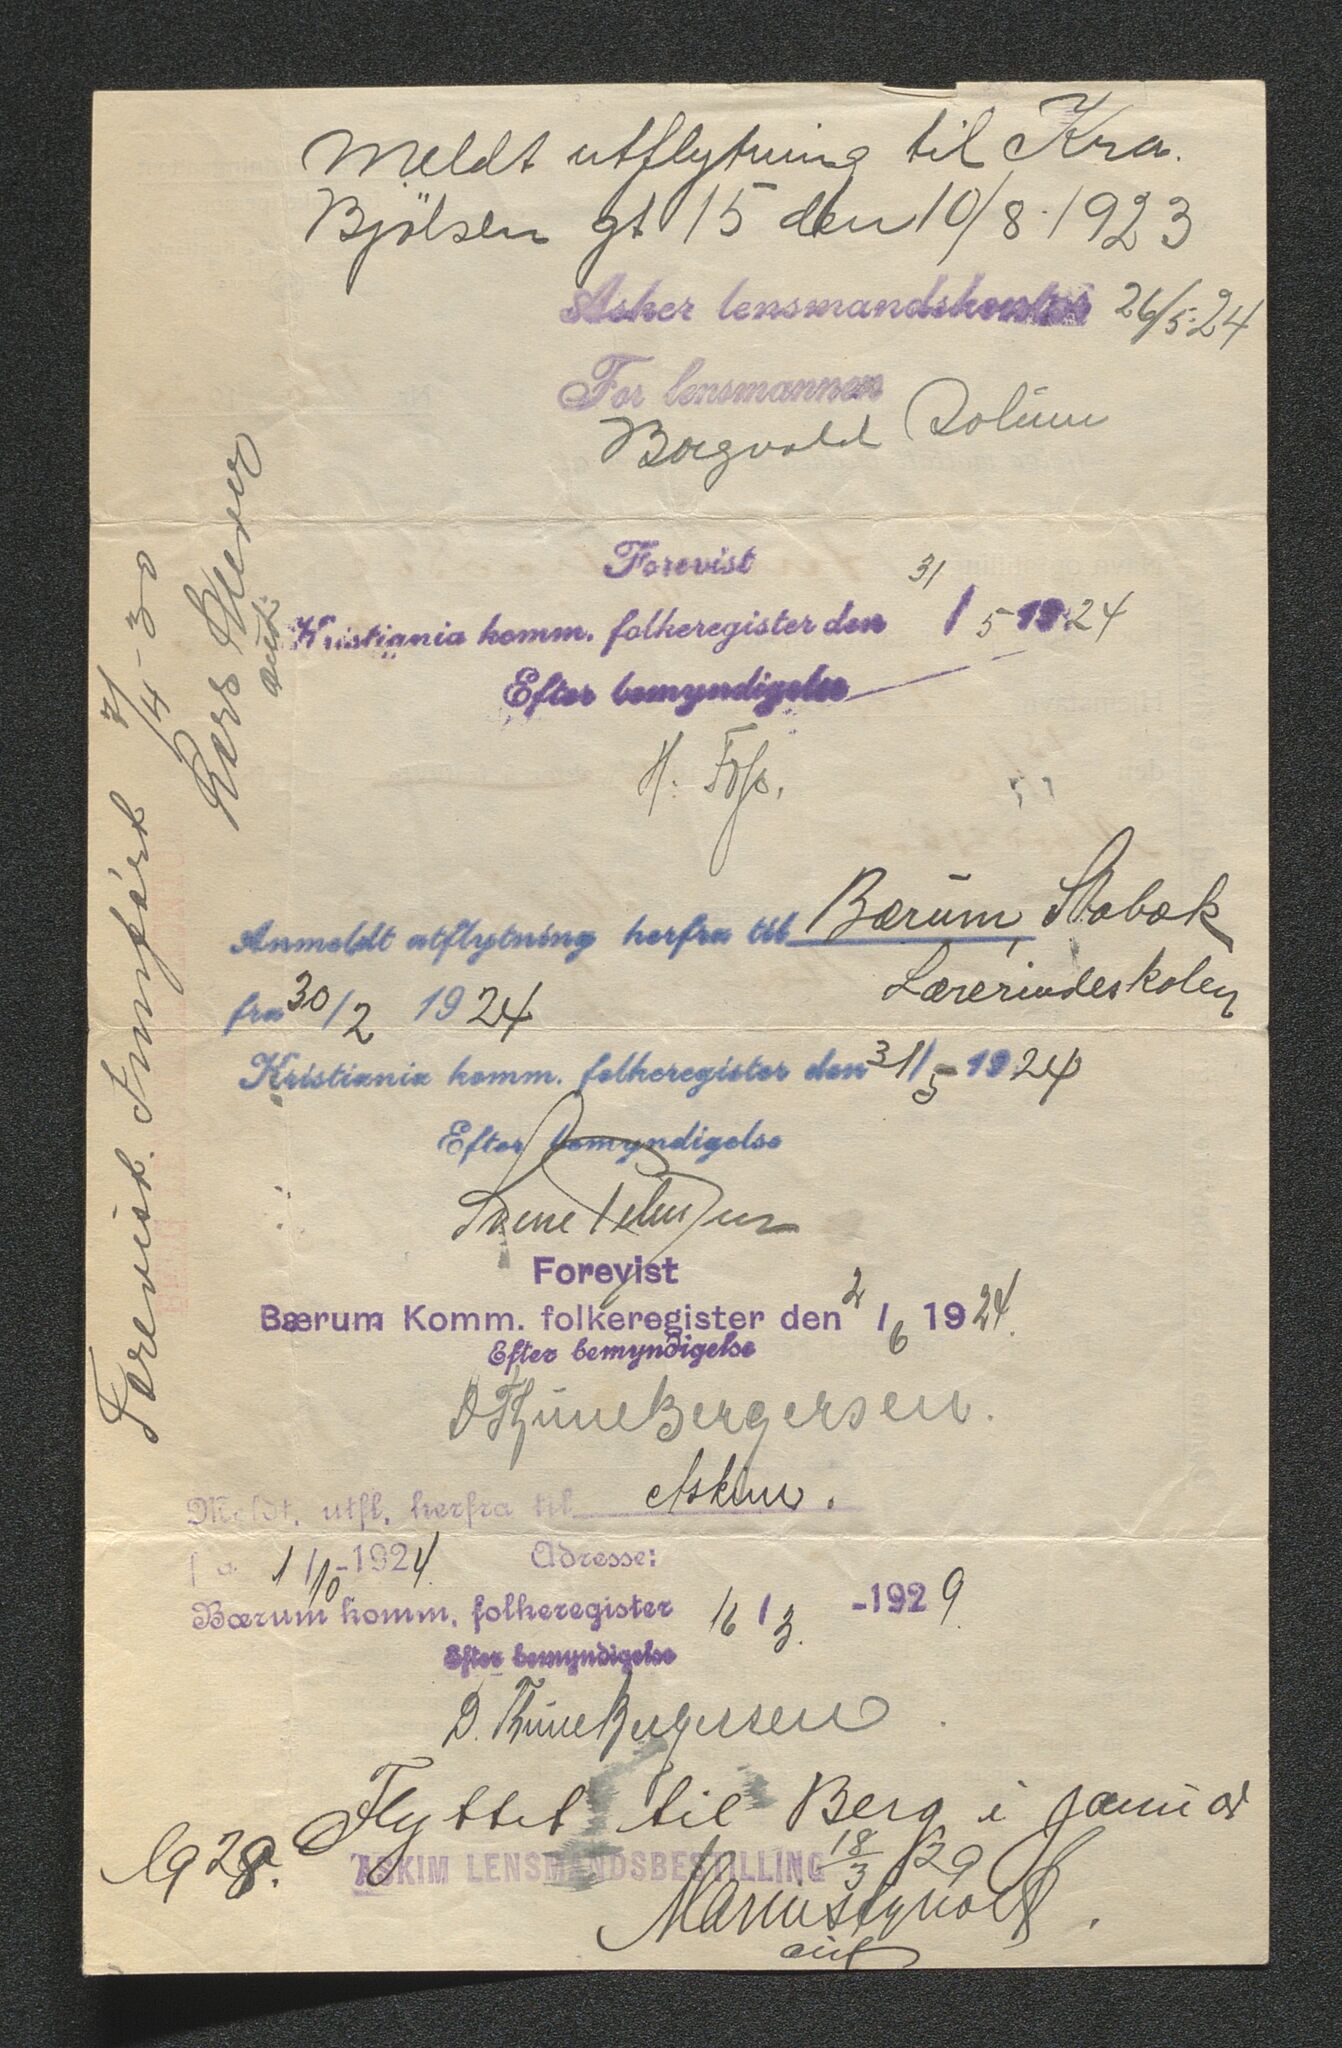 Meldt utflytning til Kra.
Bjølsen gt 15 den 10/8-1923
Asker lensmandskontor 26/5-24
For lensmannen
Borgvald Solum
Forevist
Kristiania komm. folkeregister den 31/5-1924
Efter bemyndigelse
H. Foss.
Anmeldt utflytning herfra til Bærum, Stabæk
Lærerindeskolen
fra 30/2 1924
Kristiania komm. folkeregister den 31/5-1924
Efter bemyndigelse
Forevist
Bærum Komm. folkeregister den 2/6 1924.
Efter bemyndigelse
D Thune Bergersen.
Meldt. utfl. herfra til Askim.
fra 1/10-1924 Adresse:
Bærum komm. folkeregister 16/3. -1929.
Efter bemyndigelse
D. Thune Bergersen
Flyttet til Berg i januar
1928.
ASKIM LENSMANDSBESTILLING 18/3 29
Forevist. Innført 7/4-30
Lars